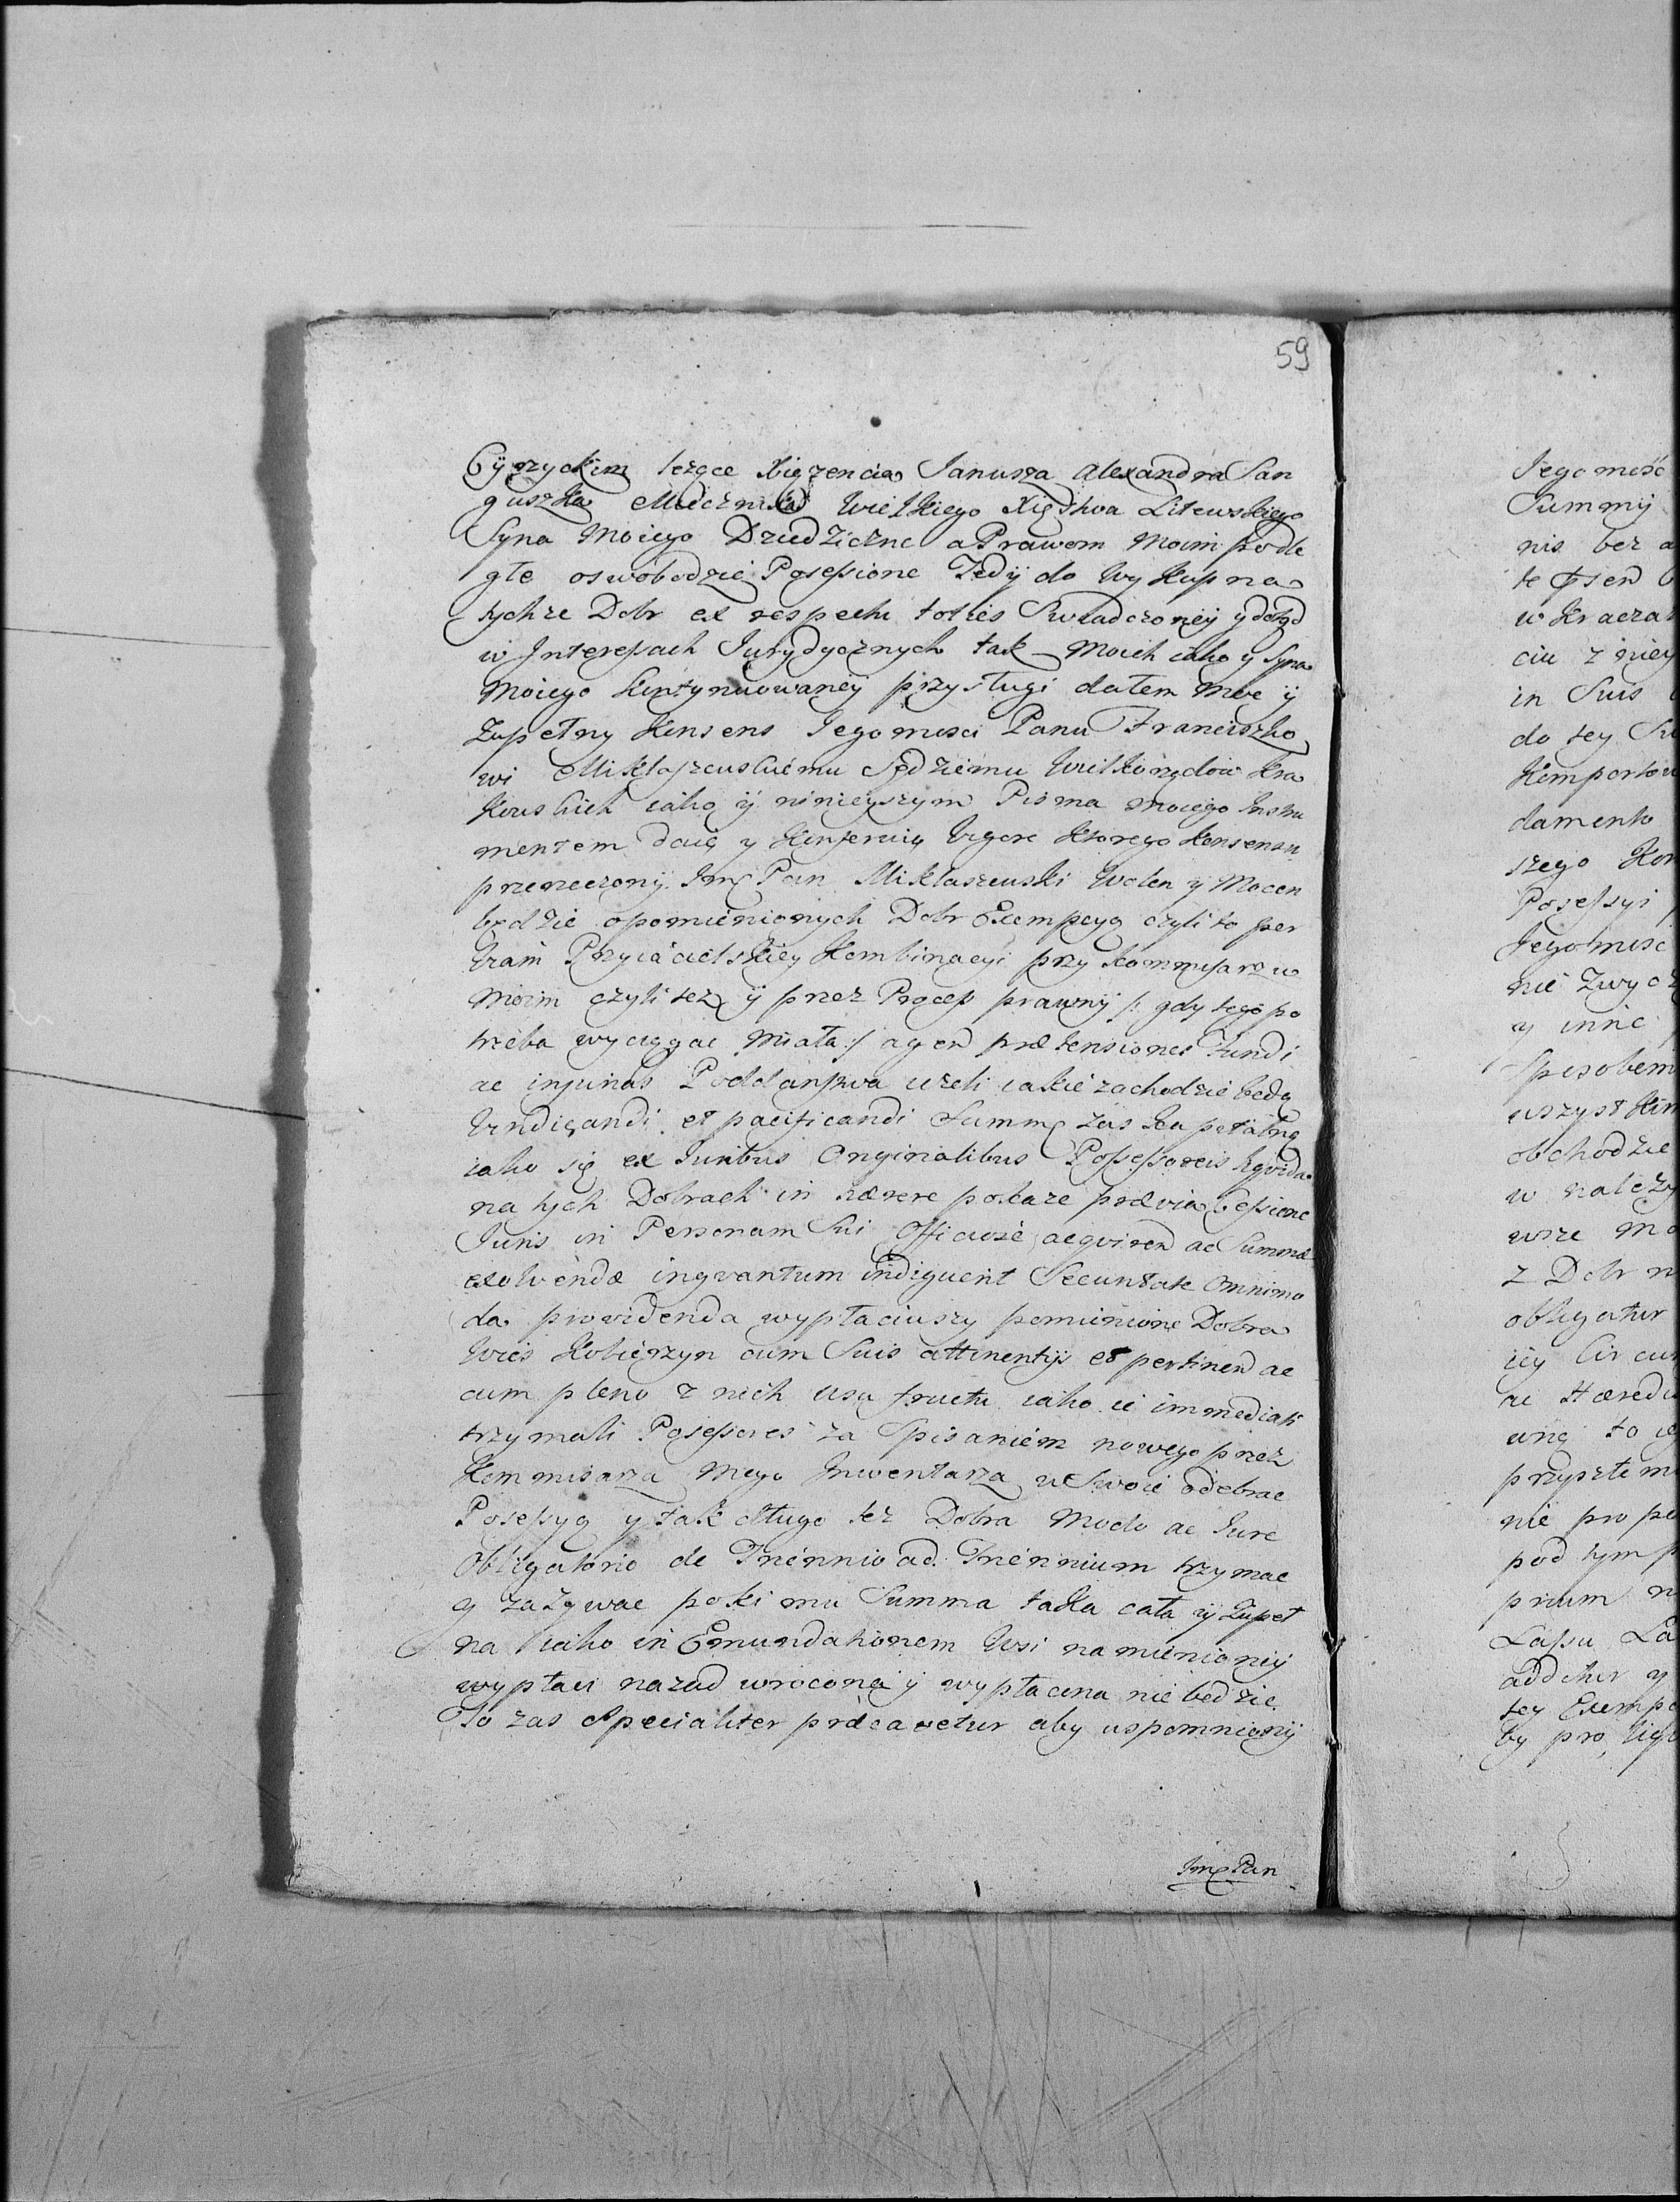 59
Cyrzyckim leżące Xiążęncia Janusza Alexandra San
guszka Miecznika Wielkiego Xięstwa Litewskiego
Syna Moiego Dziedziczne a Prawom Moim podle
głe oswobodzić Posessione Tedÿ do Wykupna
tychże Dobr ex respectu toties Swiadczoneÿ y dotąd
w Interessach Jurydycznych tak Moich iako y Syna
Moiego kontynuowaneÿ przysługi dałem Moc ÿ
Zupełny Konsens Jegomosci Panu Franciszko
wi Mikłaszewskiemu Sędziemu Wielkorządow Kra
kowskich iako ÿ ninieyszym Pisma moiego Instru
mentem daię y Konferuię Vigore ktorego Konsensu
przerzeczonÿ Jmć Pan Mikłaszewski Wolen y Mocen
będzie opomienionych Dobr Exempcyą czyli to per
Viam Przyiacielskiey Kombinacyi przy Kommissarzu
Moim czyli też ÿ przez Process prawnÿ /: gdy tego po
trzeba wyciągac Miała :/ agen prætensiones Fundi
ac injurias Poddanstwa ieżeli iakie zachodzić będą
Vindicandi et pacificandi Summę zas Kapitalną
iako się ex Juribus Originalibus Possessoreis liqvida
na tych Dobrach in hærere pokaże prævia Cessione
Juris in Personam Sui Officiose acqviren ac Summæ
exolvendæ inqvantum indiguerit Securitate Omnimo
da providenda wypłaciwszy pomienione Dobra
Wieś Kobierzyn cum Suis attinentÿs et pertinen ac
cum pleno z nich usu fructu iako ie immediati
trzymali Possessores za Spisaniem nowego przez
Kommisarza Mego Inwentarza w Swoie odebrac
Posessyą y tak długo też Dobra Modo ac Jure
Obligatorio de Triennio ad Triennium trzymac
y zażywac poki mu Summa takia cała ÿ Zupeł
na iako in Emundationem Wsi namienioneÿ
wypłaci nazad wrocona ÿ wypłacona nie będzie
To zas Specialiter præcavetur aby wspomnionÿ
Jmć Pan
Jegomość
Summÿ
nis bez a
w Kracza
ciu z niey
in Suis
do tey
Komporto
damento
szego Kon
Posessyi
Jegomisc
nie Zwycz
y inne
Sposobem
wszystkim
obchodzic
w należy
wsze mo
z Dobr n
obligatur
iey Circu
ac Hæred
wnę to
przyszłem
nie pro
pod tym p
prium n
Lapsu La
addetur y
tey Exempc
by pro